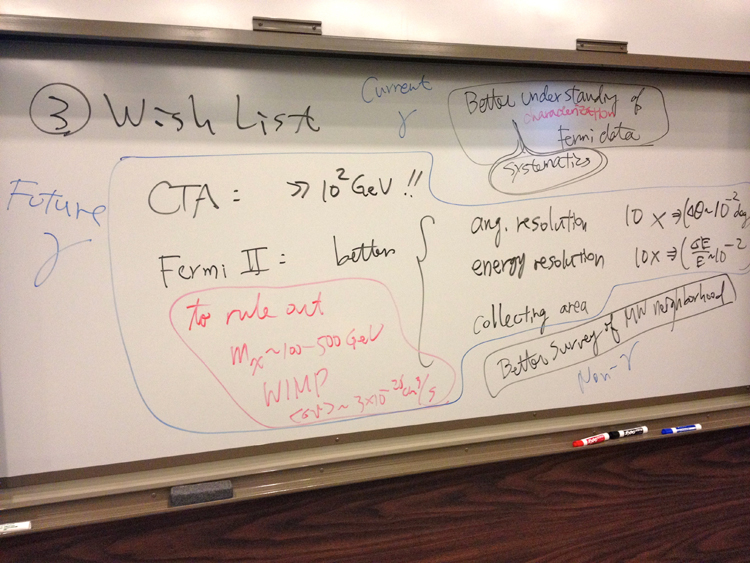 ③ Wish List
Current
γ
Better understanding of
characterization
Fermi data
systematics
Future
γ
CTA : >> 10² GeV !!
Fermi II : better
ang. resolution 10 × ⇒ (Δθ ~ 10⁻² deg
energy resolution 10x ⇒ (ΔE/E ~ 10⁻²
collecting area
to rule out
mχ ~ 100 – 500 GeV
WIMP
<σv> ~ 3×10⁻²⁶ cm³/s
Better Survey of MW neighborhood
Non-γ